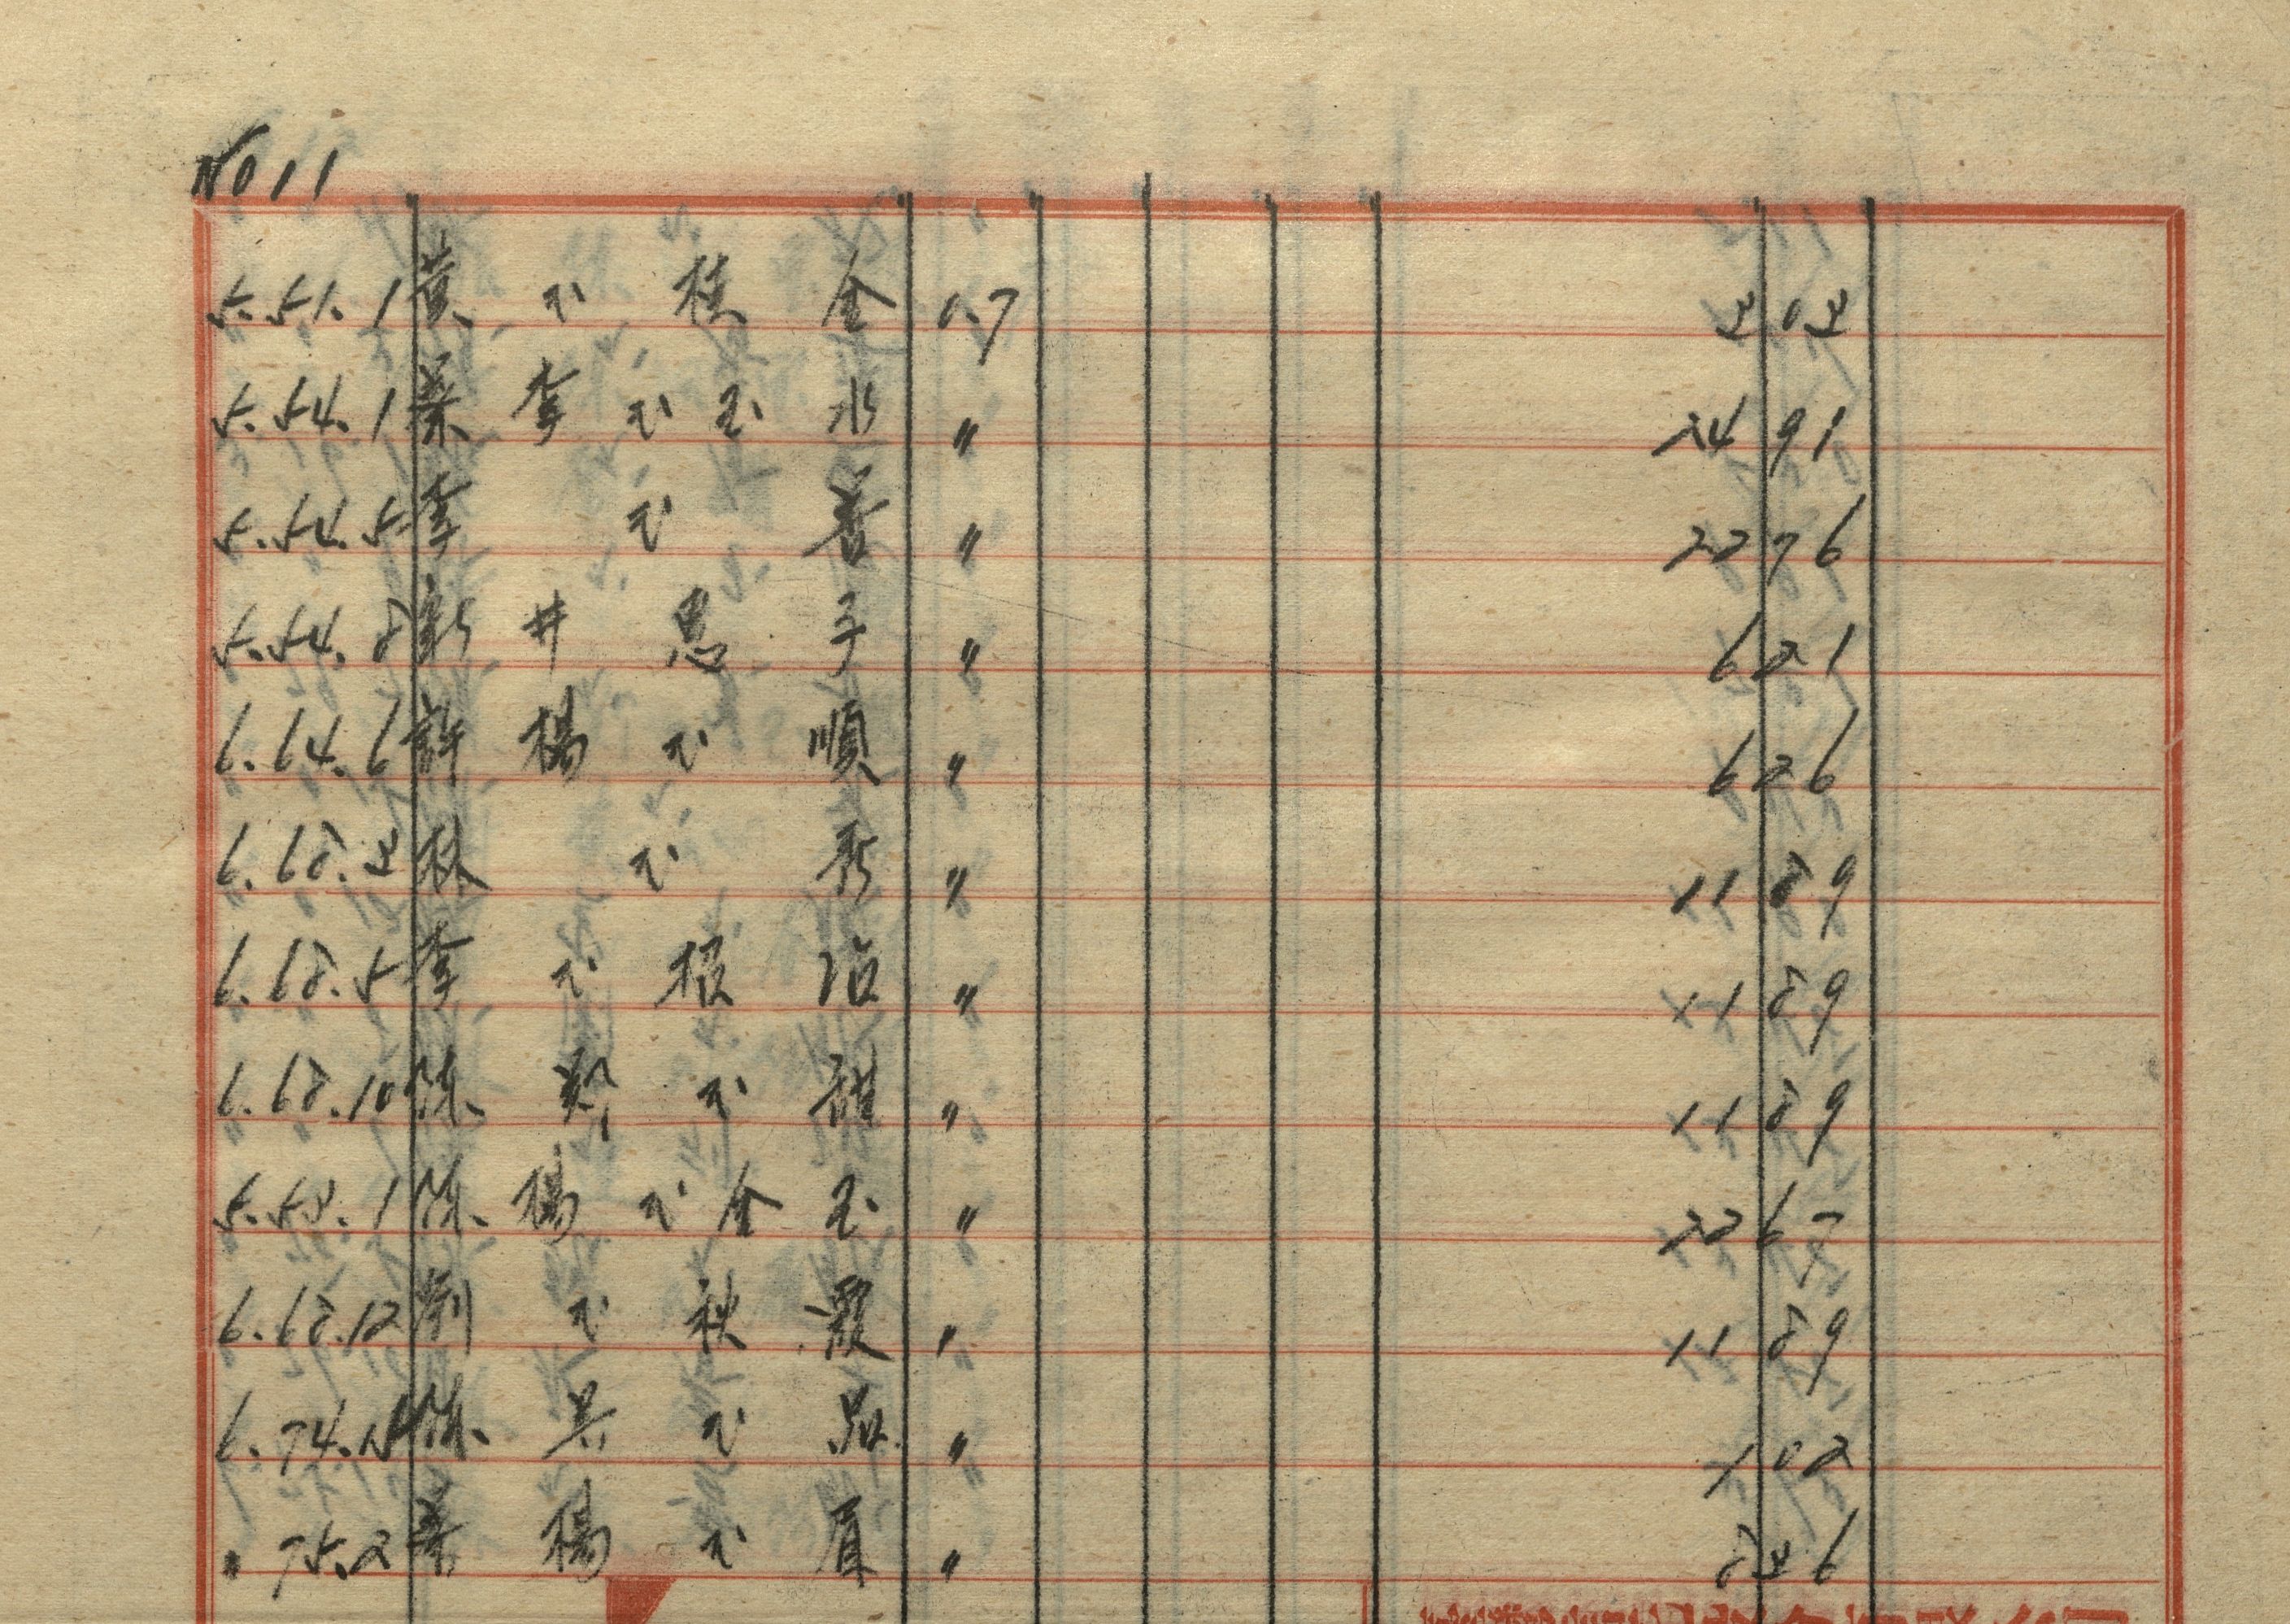 No 11
5.51.1 黄 氏 桂 金 0.7 3 03
5.54.1 葉 李 氏 玉 水 〃 24 91
5.54.5 李 氏 善 〃 22 76
5.54.8 新 井 思 子 〃 6 21
6.64.6 許 楊 氏 順 〃 6 26
6.68.3 林 氏 秀 〃 11 89
6.68.5 李 氏 根 治 〃 11 89
6.68.10 陳 鄭 氏 甜 〃 11 89
5.53.1 陳 楊 氏 金 玉 〃 22 67
6.68.12 劉 氏 秧 〃 11 89
6.74.15 陳 吳 氏 品 〃 1 02
〃 75.2 楊 氏 眉 〃 8 36